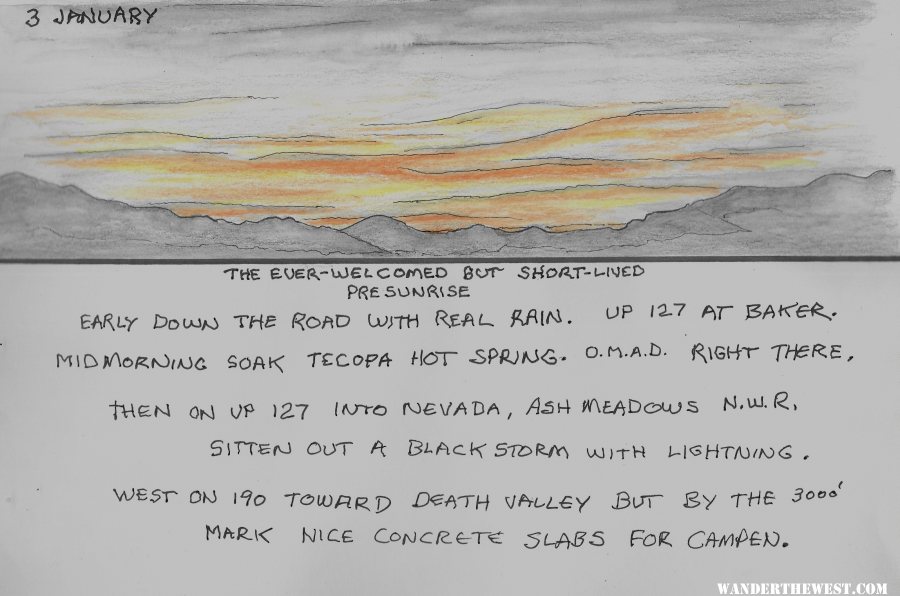 3 JANUARY
THE EVER-WELCOMED BUT SHORT-LIVED
PRESUNRISE
EARLY DOWN THE ROAD WITH REAL RAIN. UP 127 AT BAKER.
MIDMORNING SOAK TECOPA HOT SPRING. O.M.A.D. RIGHT THERE.
THEN ON UP 127 INTO NEVADA, ASH MEADOWS N.W.R.
SITTEN OUT A BLACK STORM WITH LIGHTNING.
WEST ON 190 TOWARD DEATH VALLEY BUT BY THE 3000'
MARK NICE CONCRETE SLABS FOR CAMPEN.
WANDERTHEWEST.COM